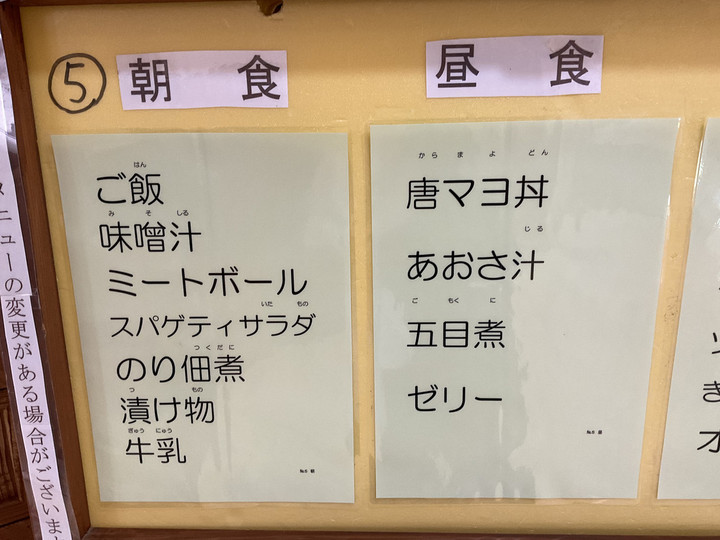 ⑤
朝食
はん
ご飯
み そ しる
味噌汁
ミートボール
いた もの
スパゲティサラダ
つくだに
のり佃煮
つ もの
漬け物
ぎゅう にゅう
牛乳
昼食
から ま よ どん
唐マヨ丼
じる
あおさ汁
ご もく に
五目煮
ゼリー
ニューの変更がある場合がございま